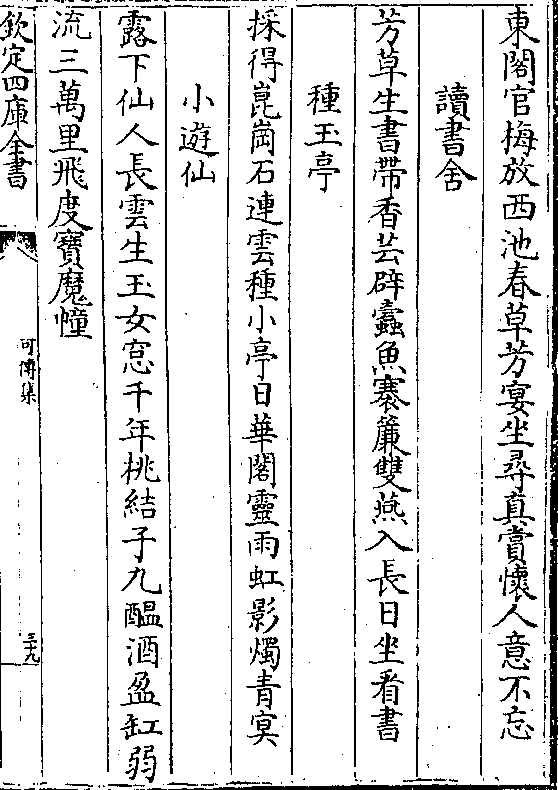 東閣官梅放西池春草芳宴坐尋真賞懷人意不忘
讀書舍
芳草生書帶香芸辟蠧魚褰簾雙燕入長日坐看書
種玉亭
採得崑崗石連雲種小亭日華閣靈雨虹影燭青冥
小遊仙
露下仙人長雲生玉女窓千年桃結子九醖酒盈缸弱
流三萬里飛度寶魔幢
欽定四庫全書
可傳集
三十九